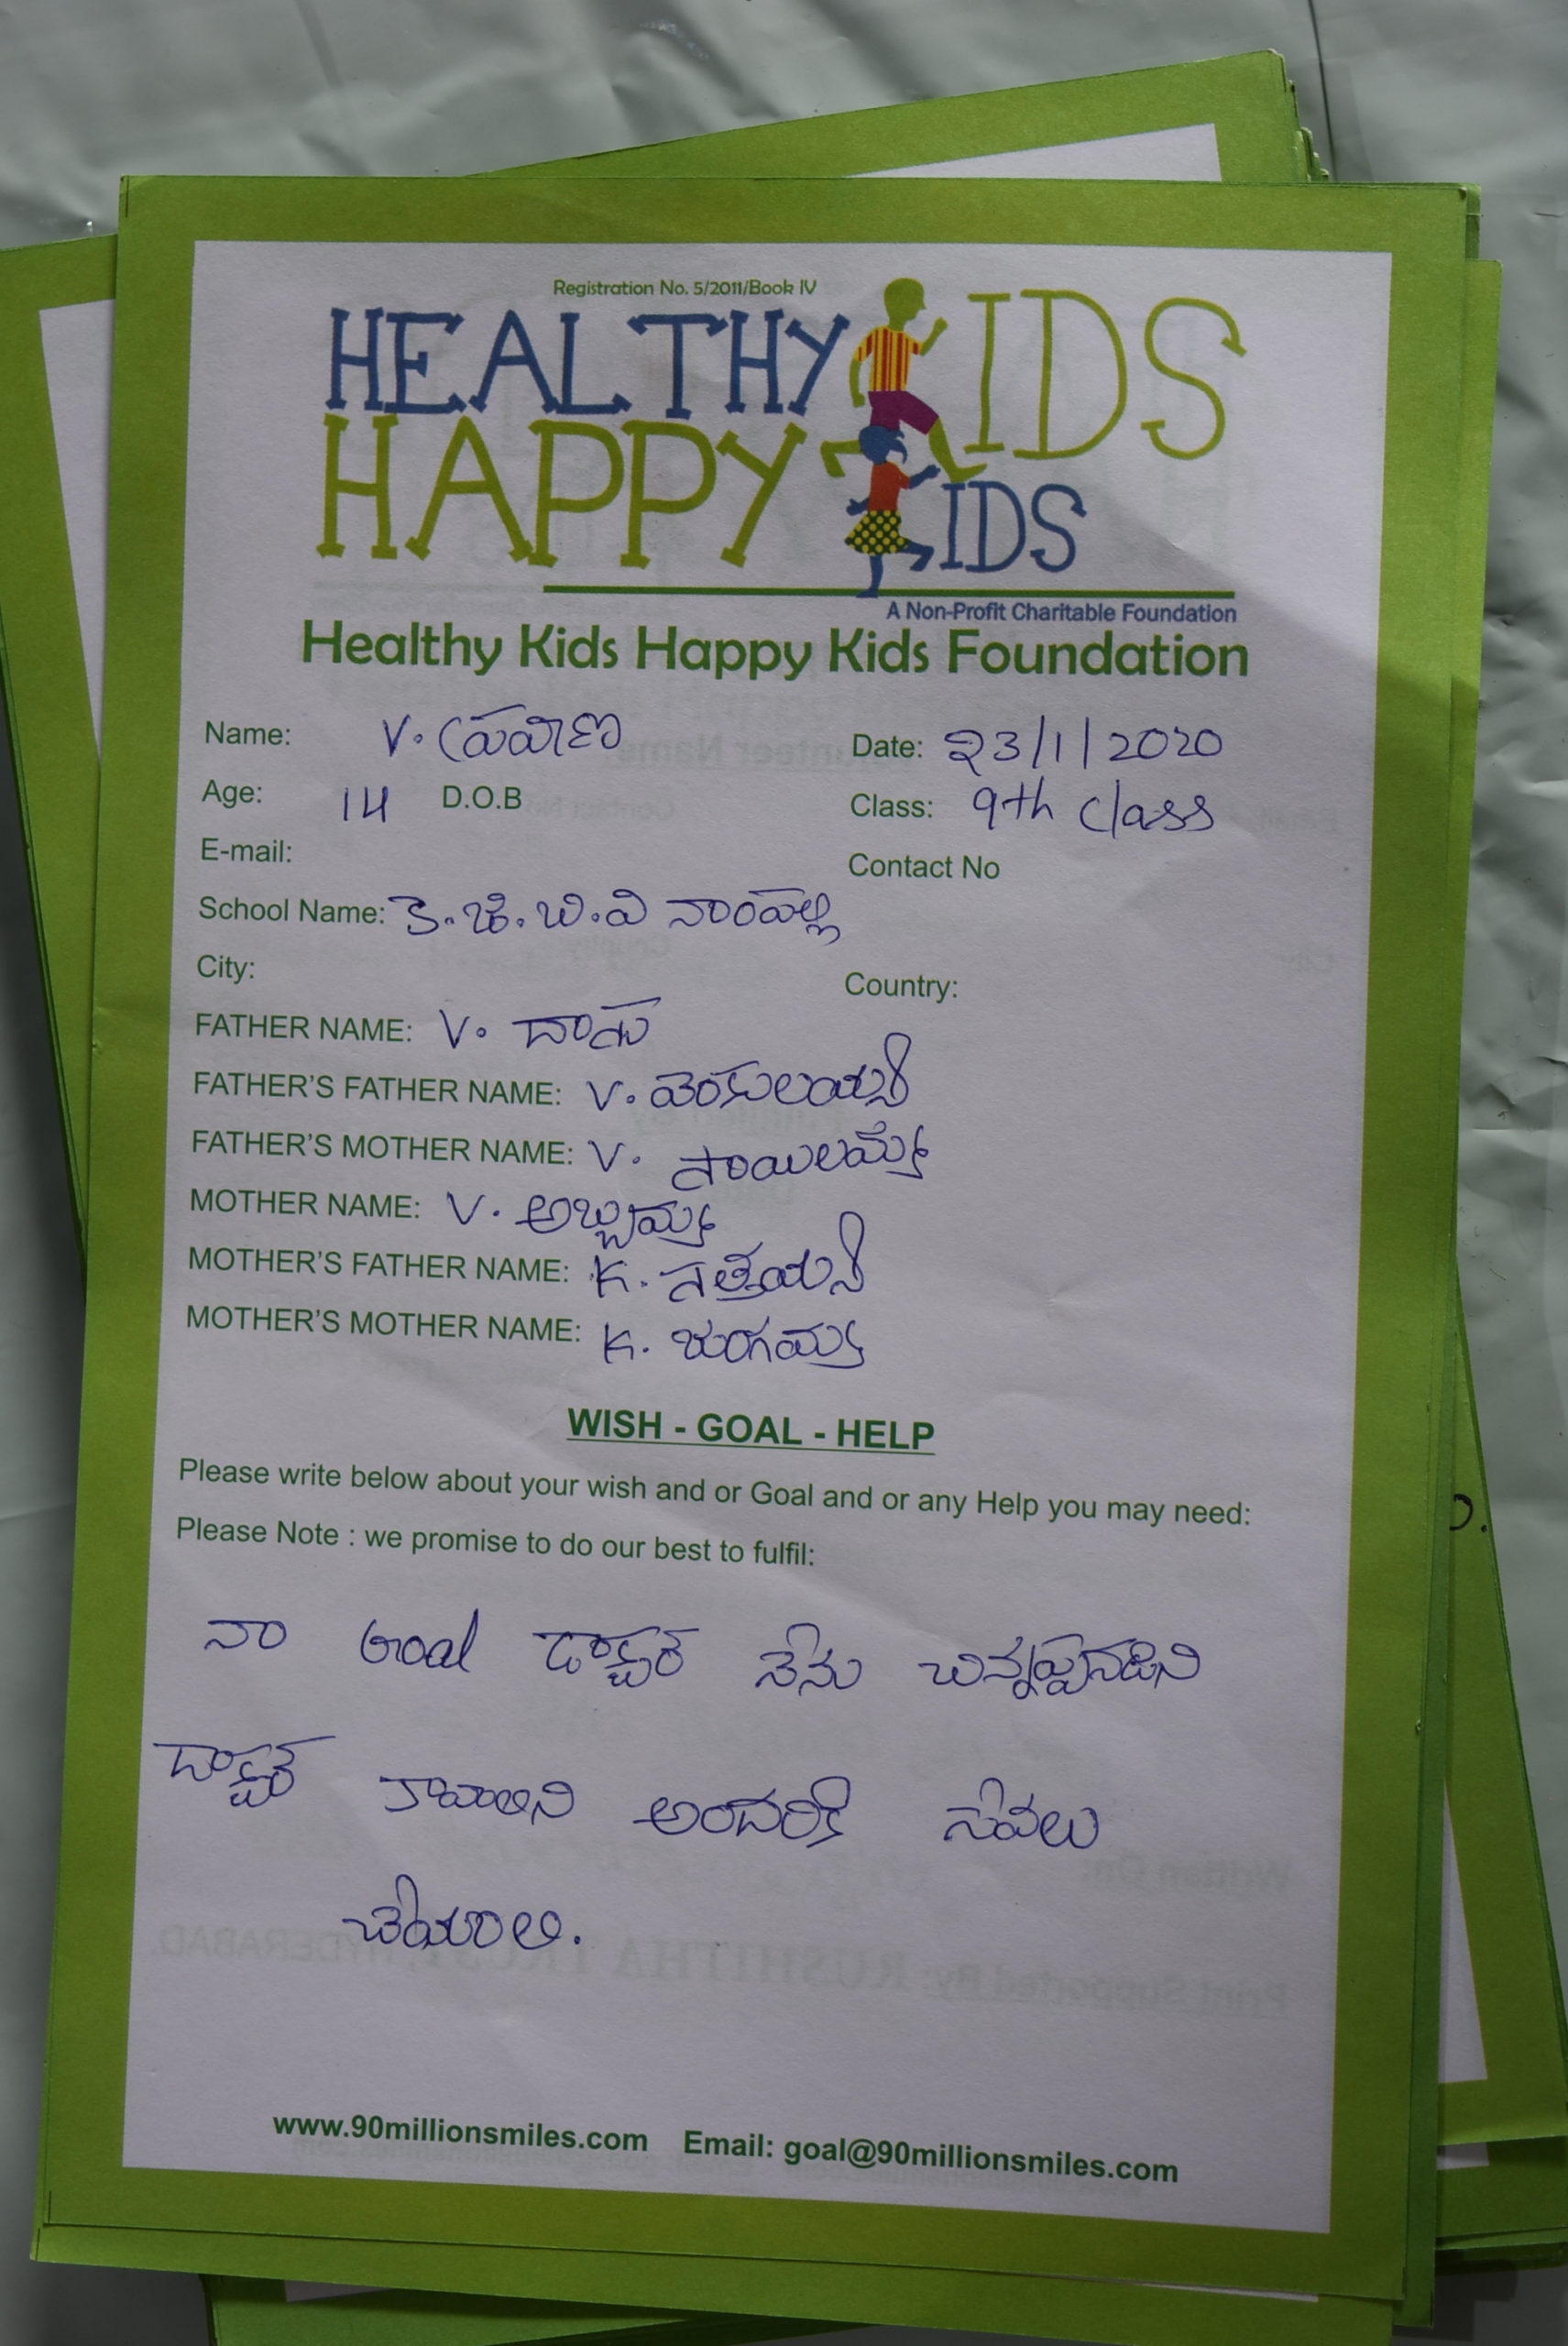 Registration No. 5/2011/Book IV
HEALTHY KIDS
HAPPY KIDS
A Non-Profit Charitable Foundation
Healthy Kids Happy Kids Foundation
Name: V. ప్రవీణ Date: 23/1/2020
Age: 14 D.O.B Class: 9th class
E-mail: Contact No
School Name: కె.జి.బి.వి నాంపల్లి
City: Country:
FATHER NAME: V. దాసు
FATHER'S FATHER NAME: V.
FATHER'S MOTHER NAME: V. సాయిలమ్మ
MOTHER NAME: V. అబ్బమ్మ
MOTHER'S FATHER NAME: K.
MOTHER'S MOTHER NAME: K.
WISH - GOAL - HELP
Please write below about your wish and or Goal and or any Help you may need:
Please Note : we promise to do our best to fulfil:
నా Goal డాక్టర్ నేను
డాక్టర్ కావాలని అందరికి సేవలు
చేయాలి.
www.90millionsmiles.com Email: goal@90millionsmiles.com